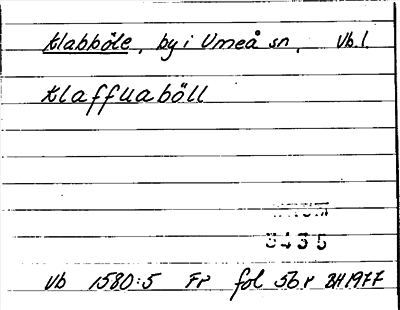 Klabböle, by i Umeå sn, Vb.l.
Klaffuaböll
3435
Vb 1580:5 Fr fol 5br BH1977